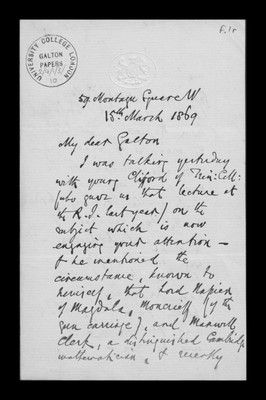 f.1r
UNIVERSITY COLLEGE LONDON
GALTON
PAPERS
59 Montagu Square W
18th March 1869
My dear Galton
I was talking yesterday
with young Clifford of Trin: Coll:
(who gave us that lecture at
the R.I. last year) on the
subject which is now
engaging your attention –
& he mentioned the
circumstance, known to
himself, that Lord Napier
of Magdala, Moncrieff (of the
gun carriage), and Maxwell
Clerk, a distinguished Cambridge
mathematician, & recently